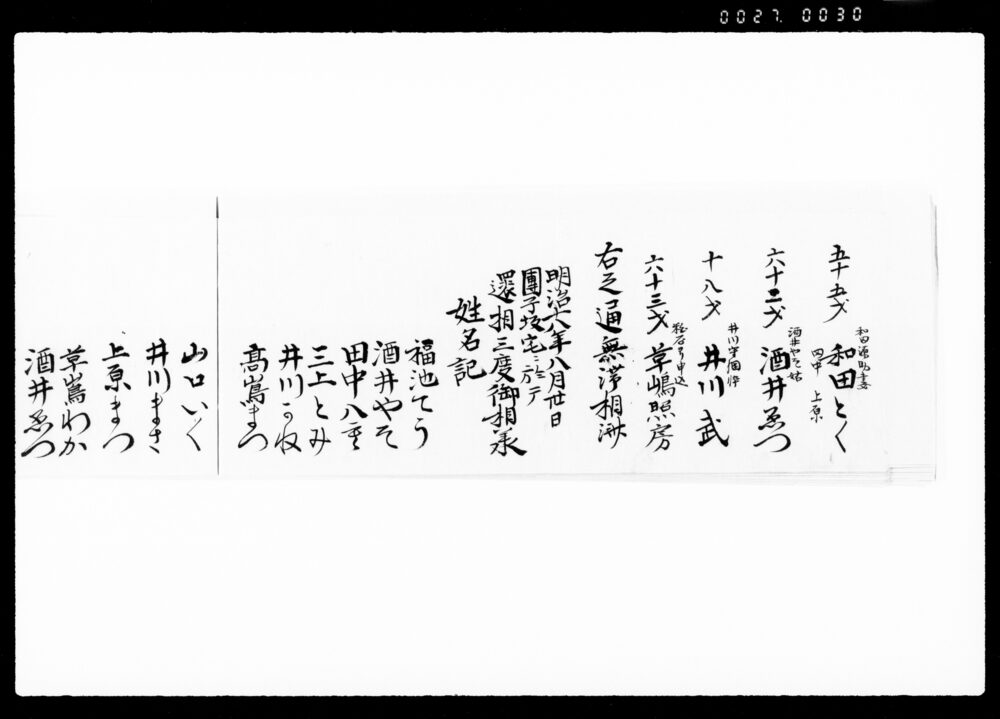 0027 0030
和田源助妻
五十五才 和田とく
田中 上原
酒井やそ姑
六十二才 酒井ゑつ
井川守国悴
十八才 井川武
六十三才 草嶋照房
右之通無滞相渉
明治十八年八月廿日
團子坂宅ニ於テ
還相三度御相承
姓名記
福池てう
酒井やそ
田中八重
三上とみ
井川かね
髙嶌まつ
山口いく
井川まさ
上原まつ
草嶌わか
酒井ゑつ